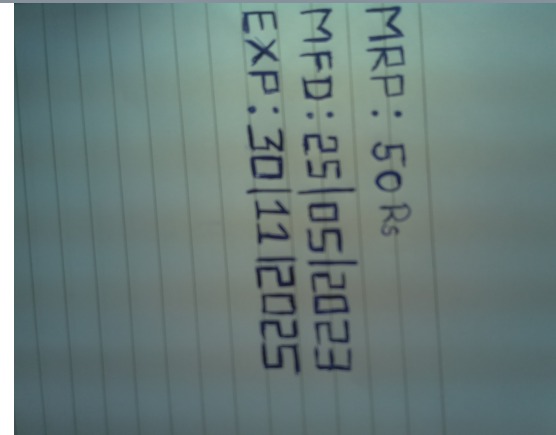 MRP: 50 Rs
MFD: 25|05|2023
EXP: 30|11|2025